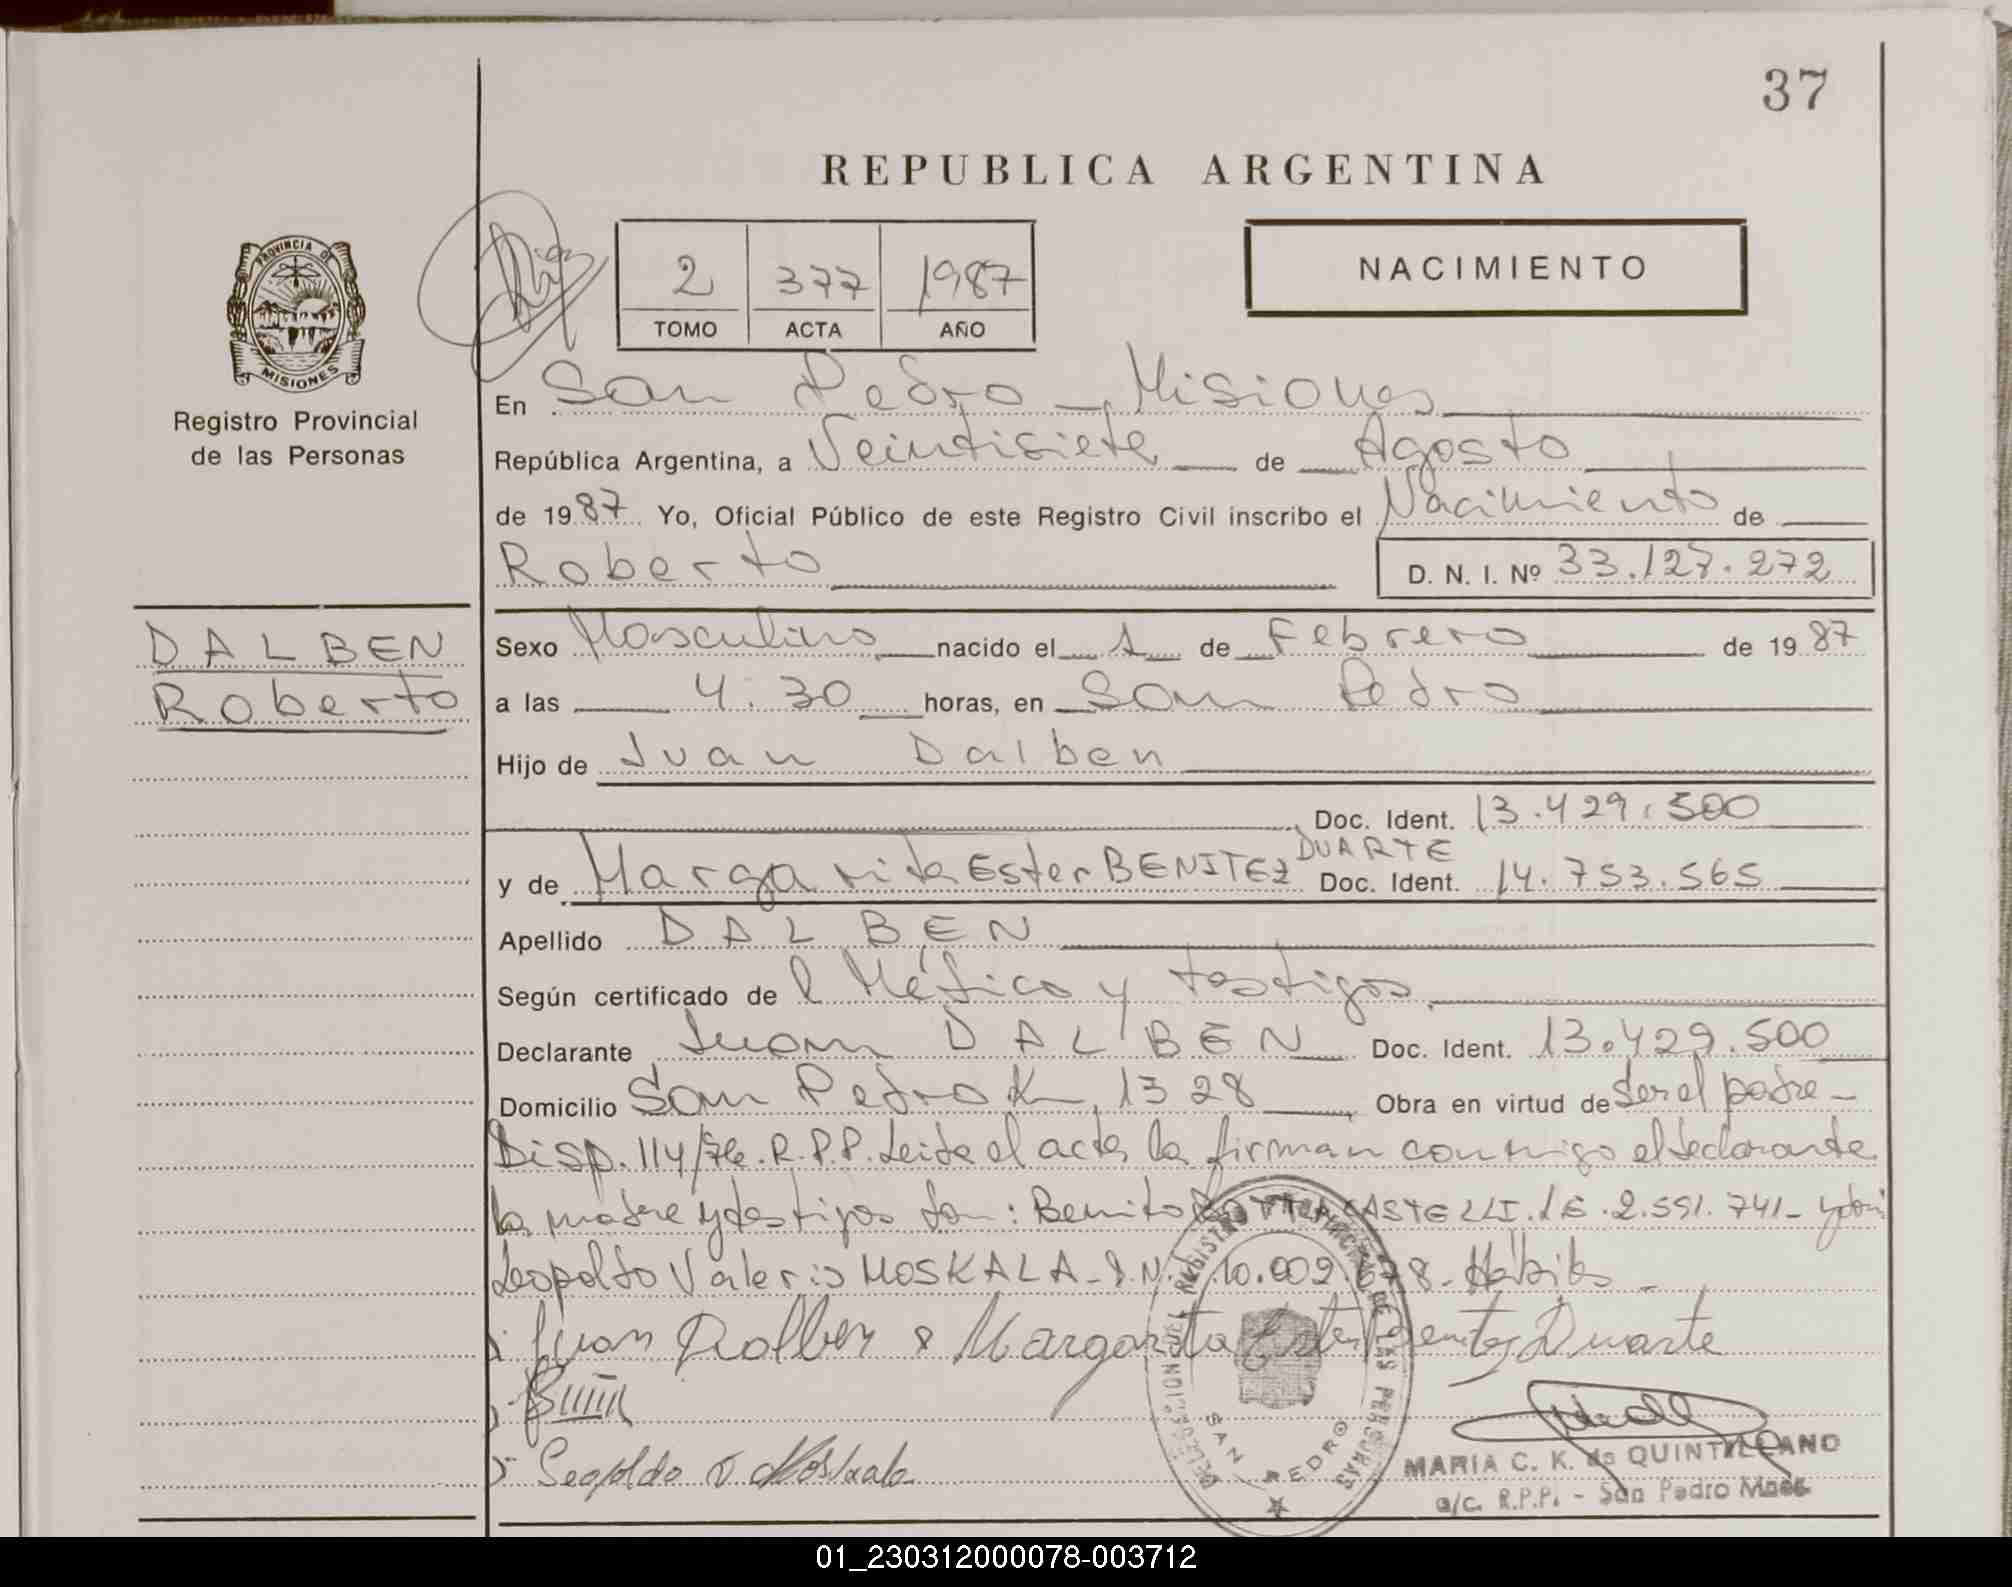 37
REPUBLICA ARGENTINA
PROVINCIA DE
MISIONES
Registro Provincial
de las Personas
2 377 1987
TOMO ACTA AÑO
NACIMIENTO
En San Pedro - Misiones
República Argentina, a Veintisiete de Agosto
de 1987 Yo, Oficial Público de este Registro Civil inscribo el Nacimiento de
Roberto D. N. I. Nº 33.127.272
DALBEN
Roberto
Sexo Masculino nacido el 1 de Febrero de 1987
a las 4:30 horas, en San Pedro
Hijo de Juan Dalben
Doc. Ident. 13.429.500
DUARTE
y de Margarita Ester BENITEZ Doc. Ident. 14.753.565
Apellido DALBEN
Según certificado de l Médico y testigos
Declarante Juan DALBEN Doc. Ident. 13.429.500
Domicilio San Pedro K 1328 Obra en virtud de Ser el padre -
Disp. 114/76. R.P.P. Leida el acta la firman conmigo el declarante
la madre y testigos Son: Benito CASTELLI. LE. 2.591.741-
Leopoldo Valerio MOSKALA - D.N.I. 10.002.678 - Hábiles -
Juan Dalben Margarita Ester Benitez Duarte
Leopoldo V Moskala
DELEGACION REGISTRO PROVINCIAL DE LAS PERSONAS
SAN PEDRO
MARIA C. K. de QUINTELLANO
a/c. R.P.P. - San Pedro Mnes.
01_230312000078-003712